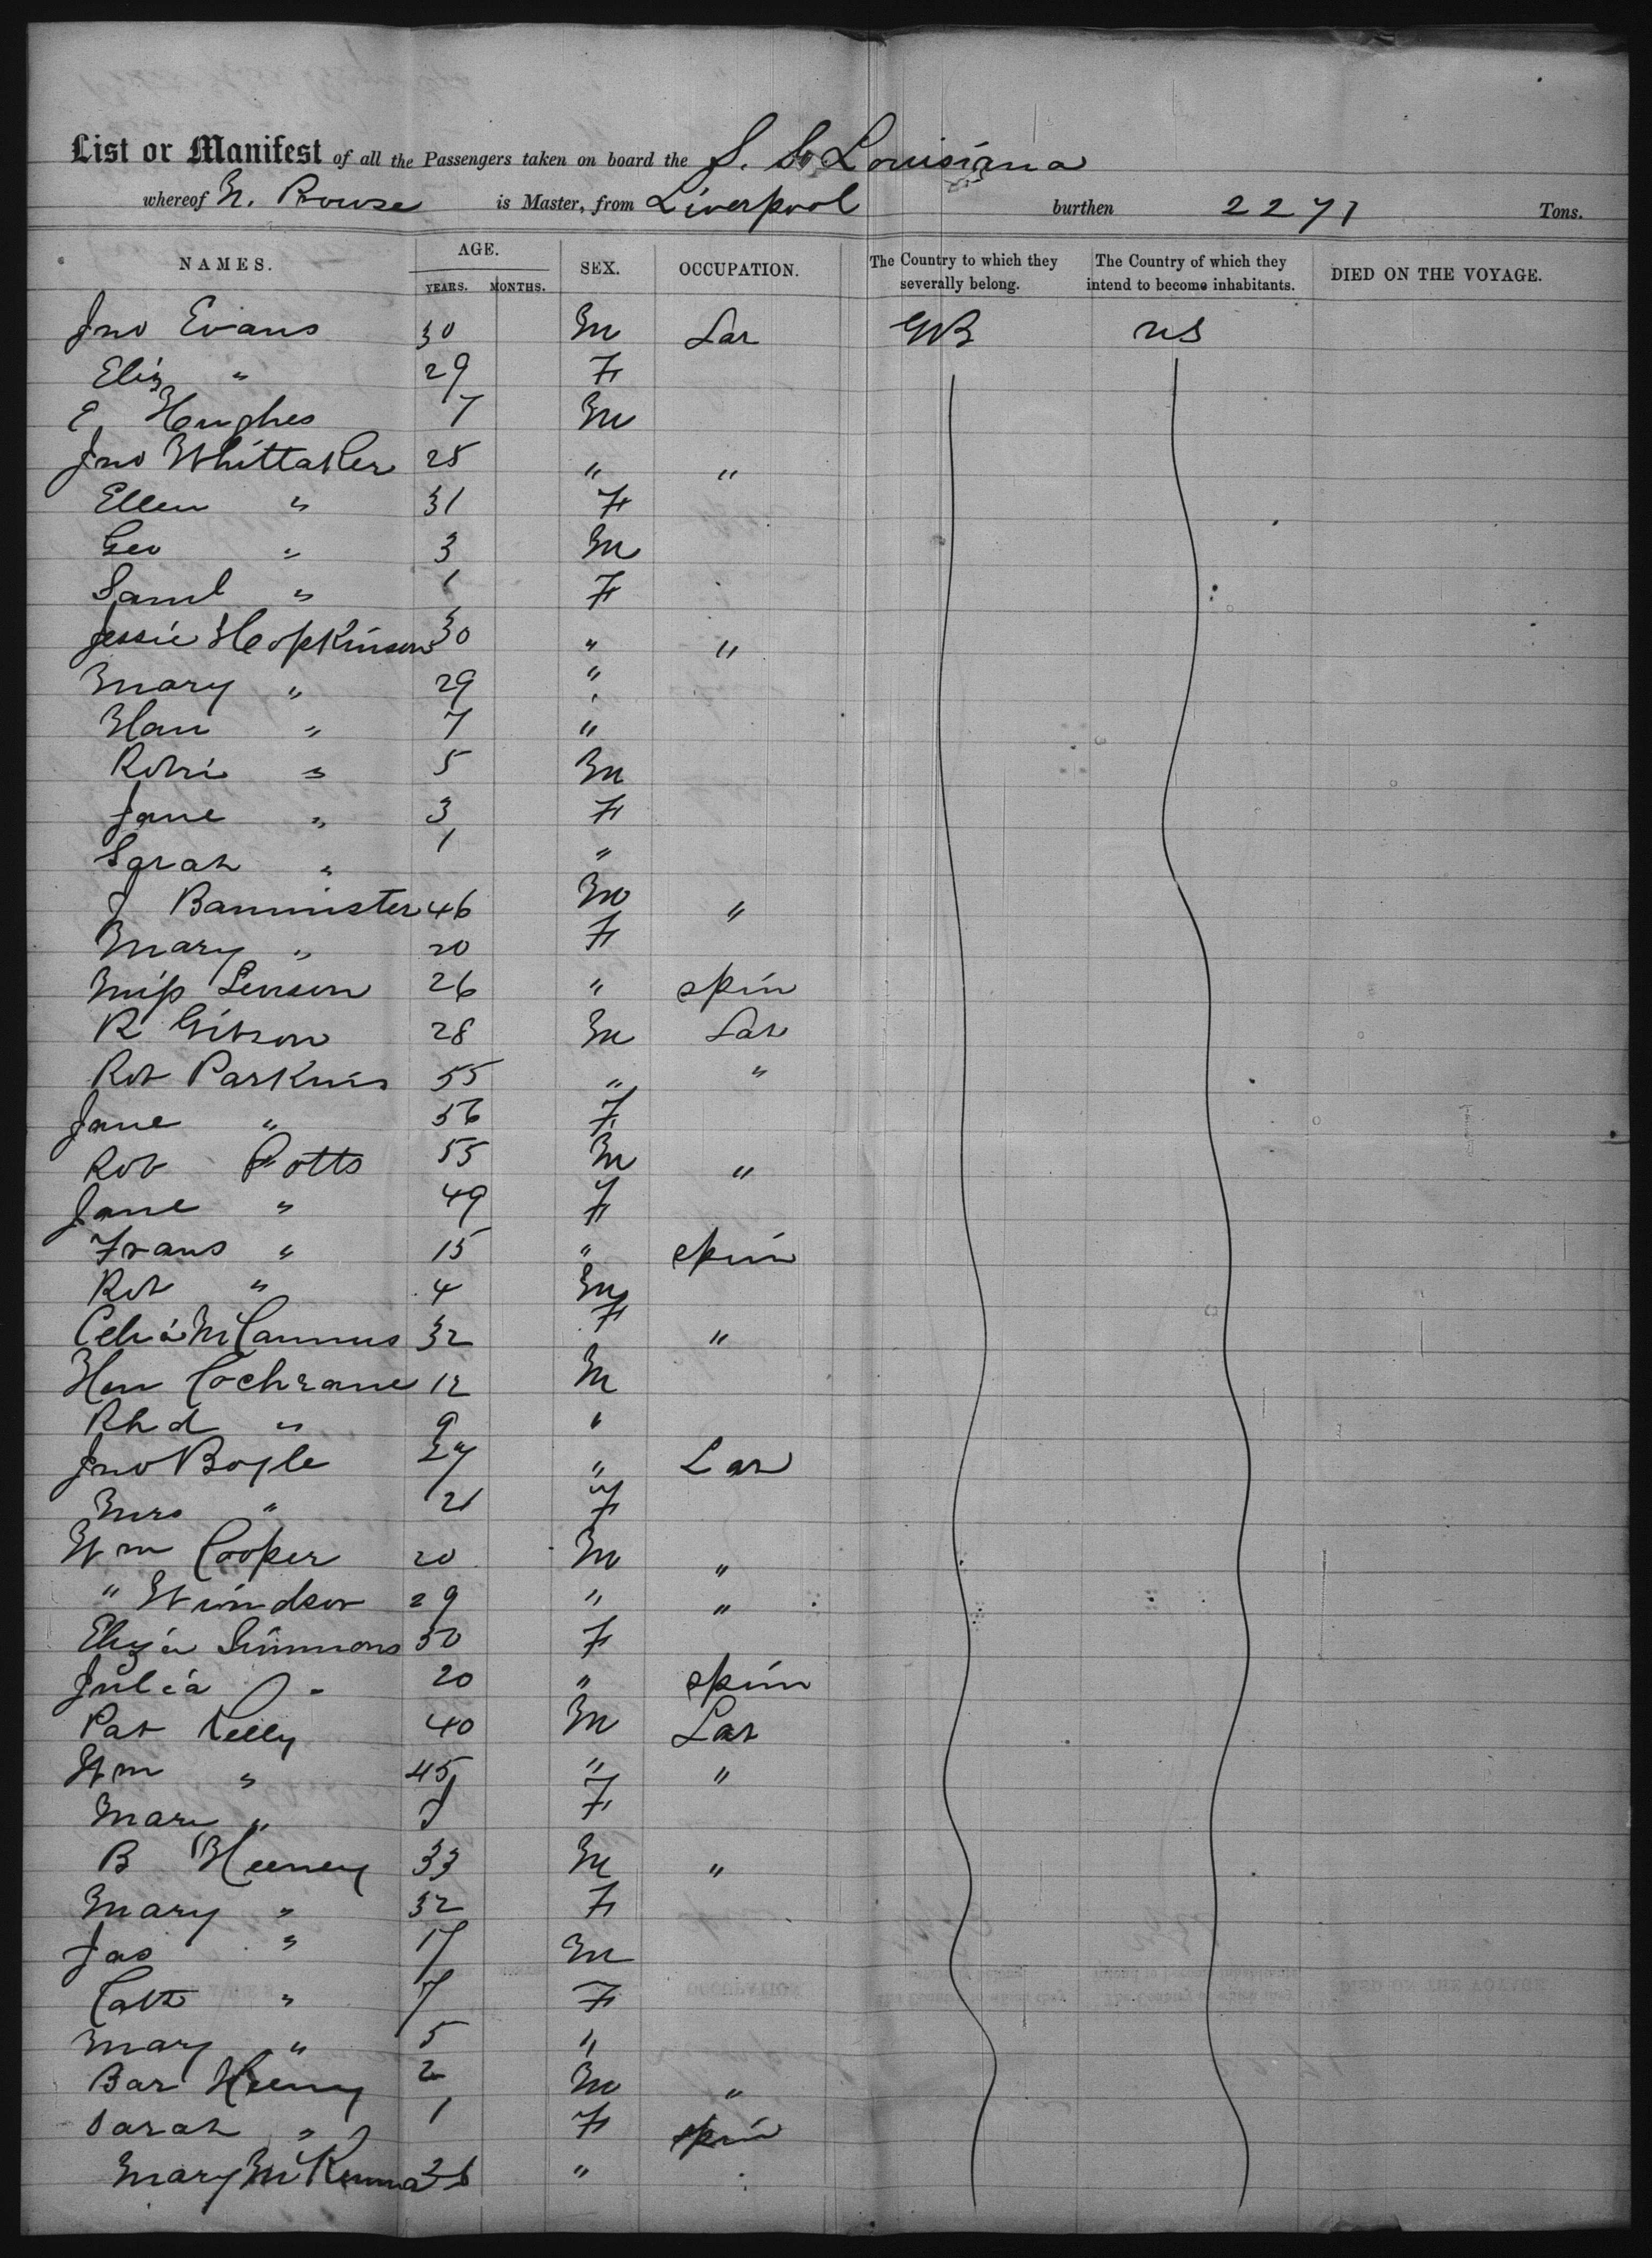 List or Manifest of all the Passengers taken on board the S. S. Louisiana
whereof N. Rowse is Master, from Liverpool burthen 2271 Tons.
NAMES. AGE. YEARS. MONTHS. SEX. OCCUPATION. The Country to which they severally belong. The Country of which they intend to become inhabitants. DIED ON THE VOYAGE.
Jno Evans 30 M Lar GB US
Eliz " 29 F
E Hughes 7 M
Jno Whittaker 25 " "
Ellen " 31 F
Geo " 3 M
Saml " 1 F
Jessie Hopkinson 30 " "
Mary " 29 "
Han " 7 "
Robn " 5 M
Jane " 3 F
Sarah " 1 "
J Bannister 46 M "
Mary " 20 F
Miss Lewson 26 " spin
R Gibson 28 M Lar
Rob Parkins 55 " "
Jane " 56 F
Rob Potts 55 M "
Jane " 49 F
Frans " 15 " spin
Rob " 4 M
Celia McCammus 32 F "
Hen Cochrane 12 M
Rhd " 9 "
Jno Boyle 27 " Lar
Mrs " 21 F
Wm Cooper 20 M "
" Windsor 29 " "
Eliza Simmons 50 F
Julia 20 " spin
Pat Kelly 40 M Lar
Wm " 45 " "
Mary " F
B Heeney 33 M "
Mary " 32 F
Jas " 17 M
Cath " 7 F
Mary " 5 "
Bar Heeny 2 M "
Sarah " 1 F spin
Mary McKenna 26 "